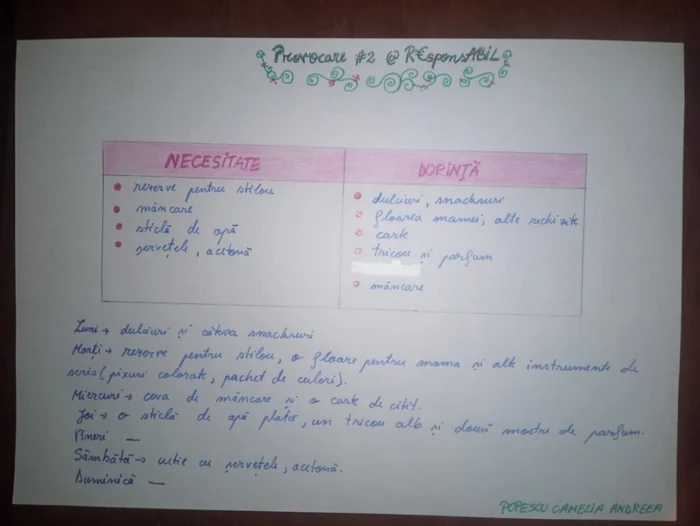 Provocare #2 @ R€sponsABiL
NECESITATE
DORINȚĂ
• rezerve pentru stilou
• mâncare
• sticlă de apă
• șervețele, acetonă
• dulciuri, snacksuri
• floarea mamei, alte rechizite
• carte
• tricou și parfum
• mâncare
Luni → dulciuri și câteva snacksuri
Marți → rezerve pentru stilou, o floare pentru mama și alte instrumente de
scris (pixuri colorate, pachet de culori).
Miercuri → ceva de mâncare și o carte de citit.
Joi → o sticlă de apă plată, un tricou alb și două mostre de parfum.
Vineri —
Sâmbătă → cutie cu șervețele, acetonă.
Duminică —
POPESCU CAMELIA ANDREEA